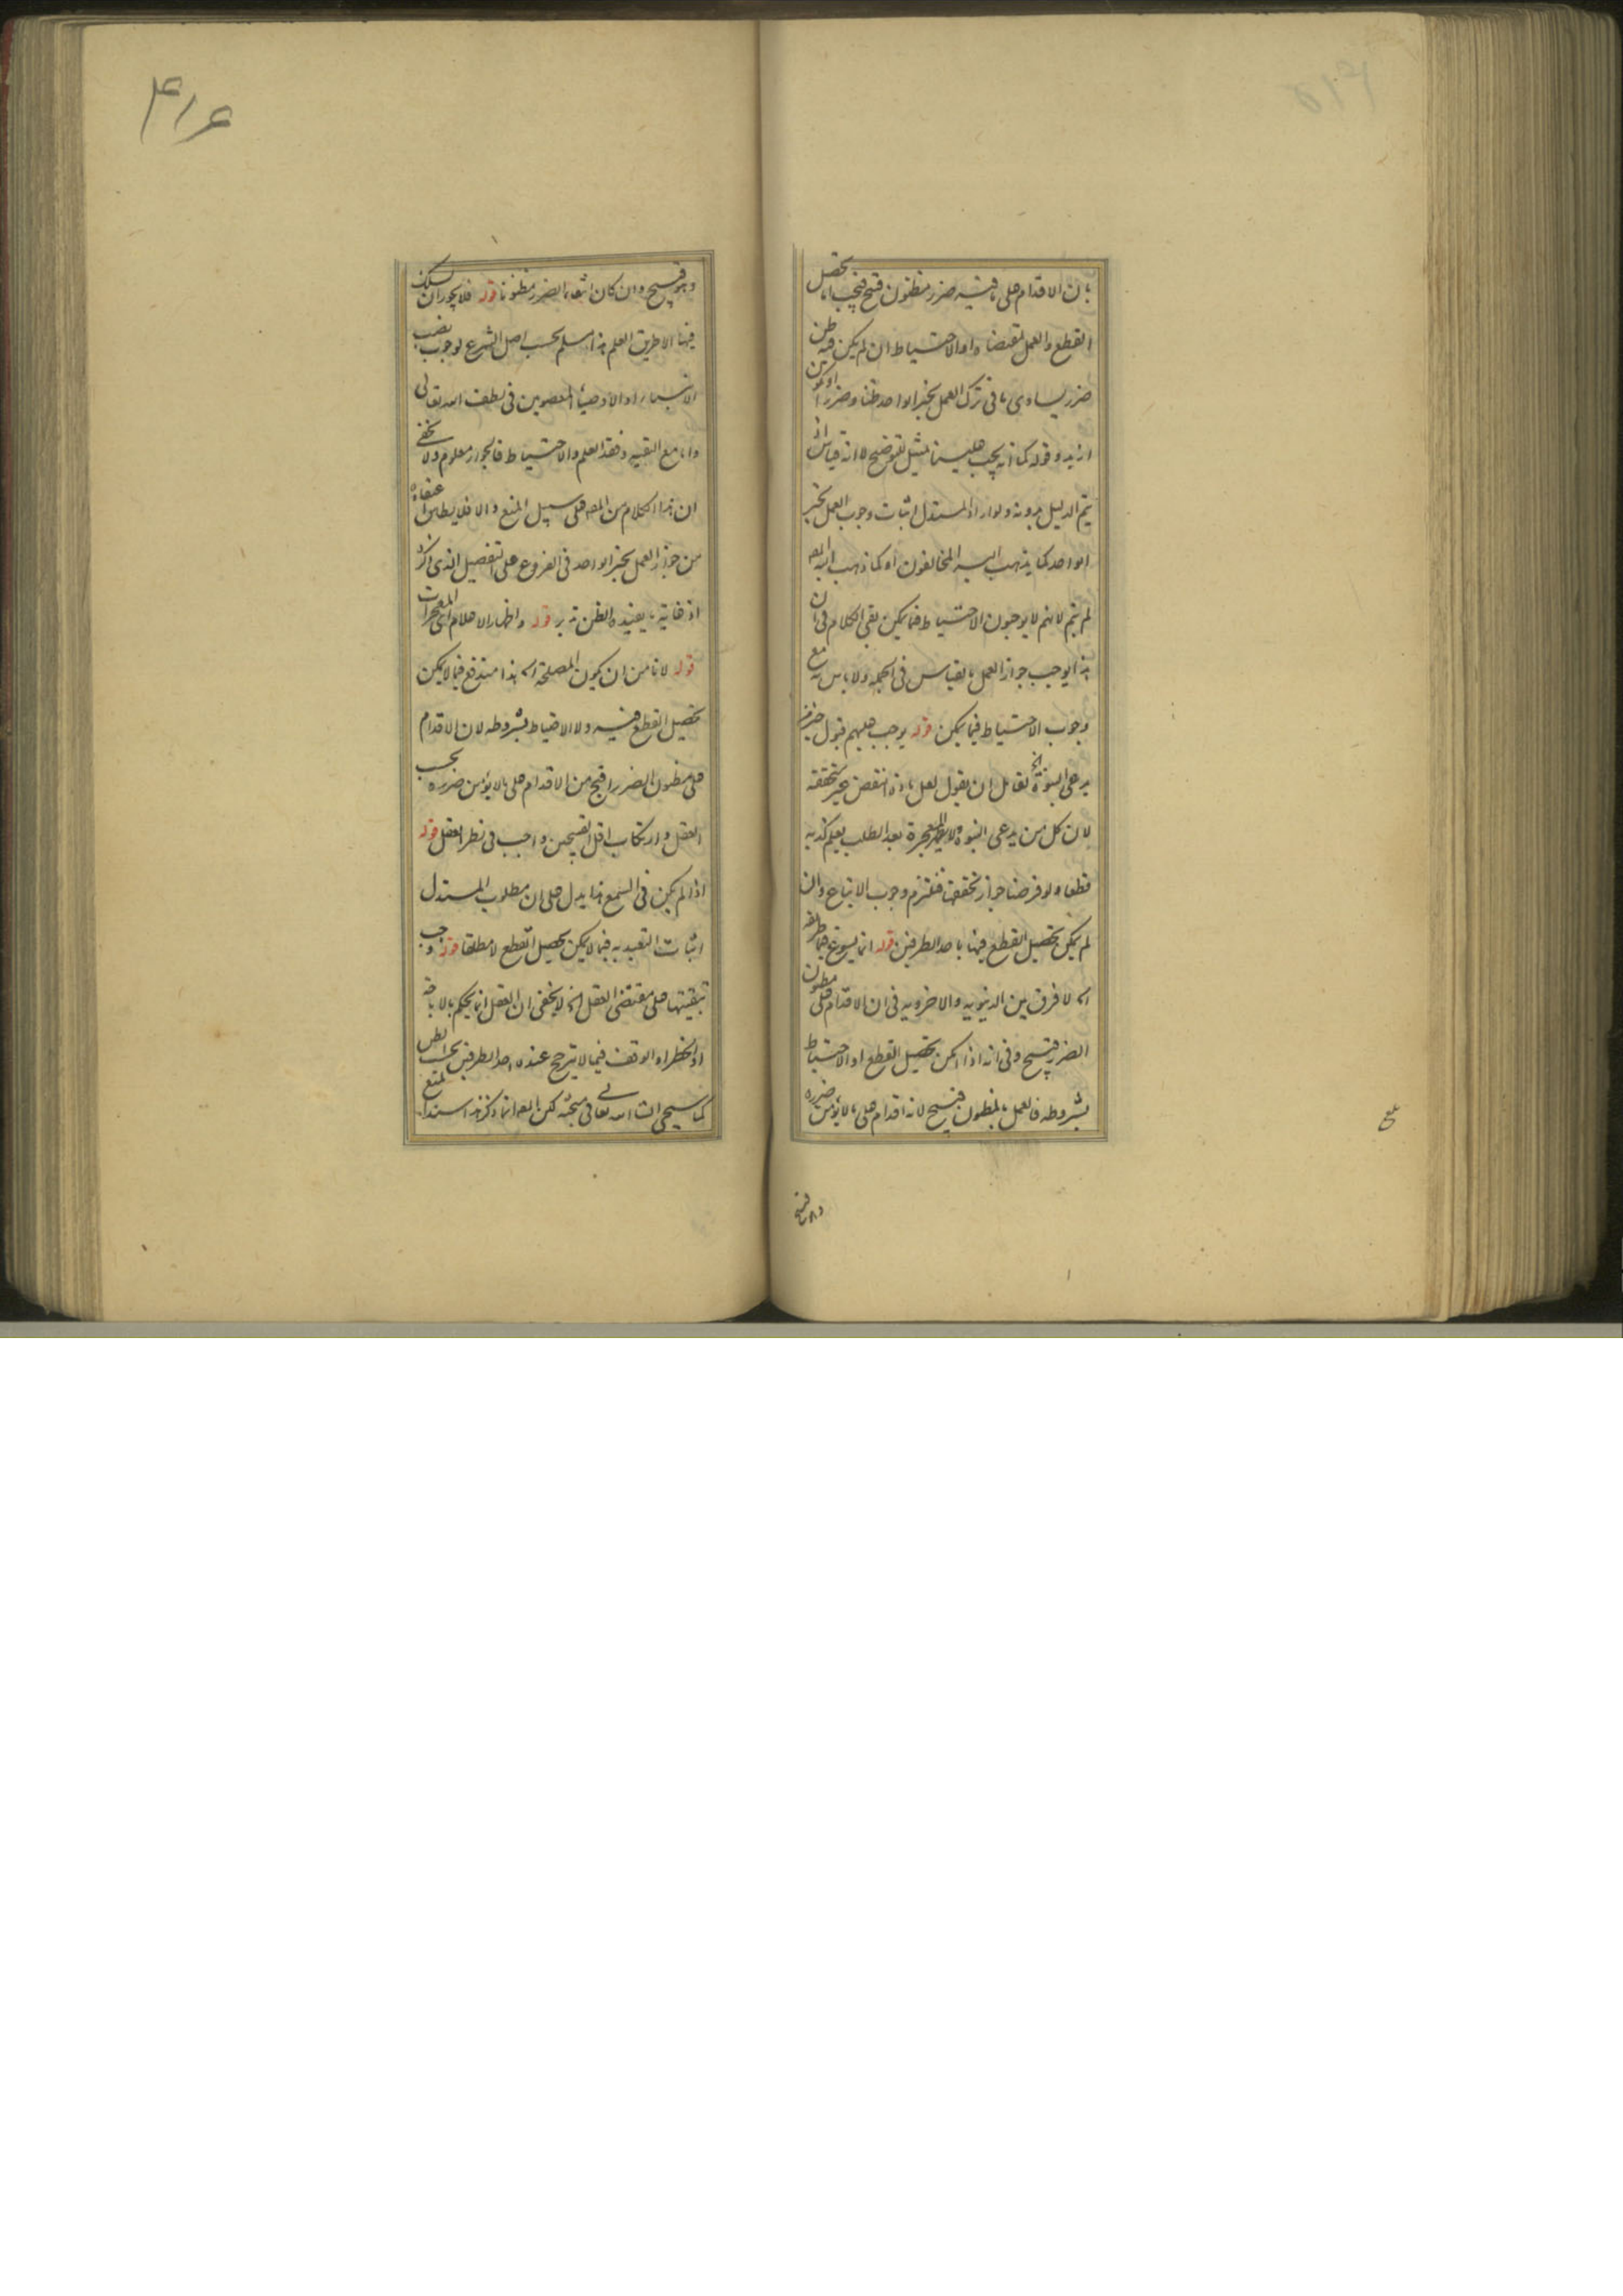 بان الاقدام على ما فيه ضرر مظنون قبيح فيجب اما تحصيل
القطع والعمل بمقتضاه او الاحتياط ان لم يكن فيه ظن
ضرر يساوى ما فى ترك العمل بخبر الواحد ظنا وضررا او يكون
ازيد وقوله كما انه يجب علينا تمثيل لتوضيح لا انه قياس اذ
يتم الدليل بدونه ولو اراد المستدل اثبات وجوب العمل بخبر
الواحد كما يذهب اليه المخالفون او كما ذهب اليه المص
لم يتم لانهم لا يوجبون الاحتياط فيما يمكن بقى الكلام فى ان
هذا يوجب جواز العمل بالقياس فى الجملة ولا باس به مع
وجوب الاحتياط فيما يمكن قوله يوجب عليهم قبول خبر من
يدعى النبوة الخ لقائل ان يقول لعل مادة النقض غير متحققة
لان كل من يدعى النبوة ولا يظهر المعجزة بعد الطلب يعلم كذبه
قطعا ولو فرضنا جواز تحققها فنلتزم وجوب الاتباع وان
لم يمكن تحصيل القطع فيها باحد الطرفين قوله انما يسوغ فيما طريقه
الخ لا فرق بين الدنيوية والاخروية فى ان الاقدام على مظنون
الضرر قبيح وفى انه اذا امكن تحصيل القطع او الاحتياط
بشروطه فالعمل بالمظنون قبيح لانه اقدام على ما لا يؤمن ضرره
وهو قبيح
وهو قبيح وان كان انتفاء الضرر مظنونا قوله فلا يجوز ان يسلك
فيها الا طريق العلم هذا مسلم بحسب اصل الشرع لوجوب نصب
الانبياء والاوصياء المعصومين فى لطف الله تعالى
واما مع التقية وفقد العلم والاحتياط فالجواز معلوم ولا يخفى
ان هذا الكلام من المص على سبيل المنع والا فلا يطابق
من جواز العمل بخبر الواحد فى الفروع على التفصيل الذى ذكره
اذ غاية ما يفيده الظن تدبر قوله واظهار الاعلام اى المعجزات
قوله لا نامن ان يكون المصلحة الخ هذا مندفع فيما لا يمكن
تحصيل القطع فيه ولا الاحتياط بشروطه لان الاقدام
على مظنون الضرر اقبح من الاقدام على ما لا يؤمن ضرره بحسب
العقل وارتكاب اقل القبيحين واجب فى نظر العقل قوله
اذا لم يكن فى السمع هذا يدل على ان مطلوب المستدل
اثبات التعبد به فيما لا يمكن تحصيل القطع لا مطلقا قوله وجب
تبقيتها على مقتضى العقل الخ لا يخفى ان العقل انما يحكم بالاباحة
او الحظر او الوقف فيما لا يترجح عنده احد الطرفين بحسب الظن
كما سيجئ ان شاء الله تعالى فى مبحثه لكن المص انما ذكر هذا سندا للمنع